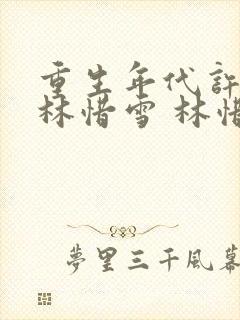 重生年代許
林惜雪 林惜
夢里三千風幕